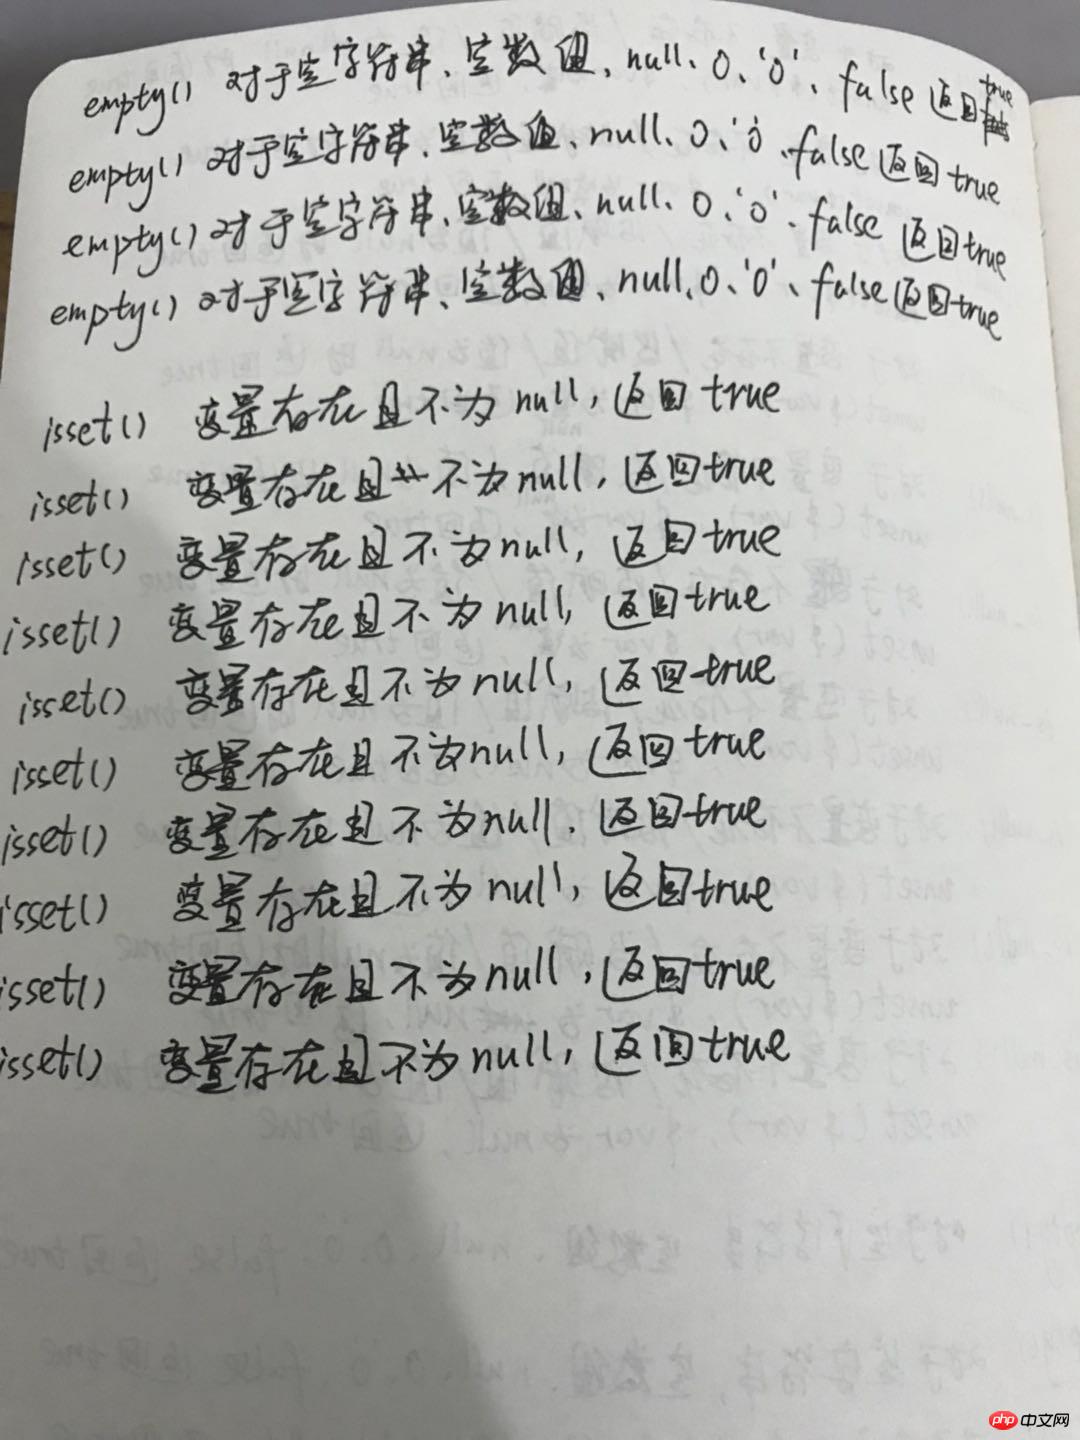 empty() 对于空字符串、空数组、null、0、'0'、false 返回 true
empty() 对于空字符串、空数组、null、0、'0'、false 返回 true
empty() 对于空字符串、空数组、null、0、'0'、false 返回 true
empty() 对于空字符串、空数组、null、0、'0'、false 返回 true
isset() 变量存在且不为 null, 返回 true
isset() 变量存在且不为 null, 返回 true
isset() 变量存在且不为 null, 返回 true
isset() 变量存在且不为 null, 返回 true
isset() 变量存在且不为 null, 返回 true
isset() 变量存在且不为 null, 返回 true
isset() 变量存在且不为 null, 返回 true
isset() 变量存在且不为 null, 返回 true
isset() 变量存在且不为 null, 返回 true
isset() 变量存在且不为 null, 返回 true
php 中文网